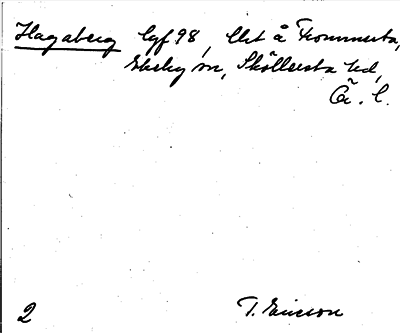 Hagaberg lgf 98, litt å Trommesta,
Ekeby sn, Sköllersta hd,
Ör. l.
2
T. Ericson